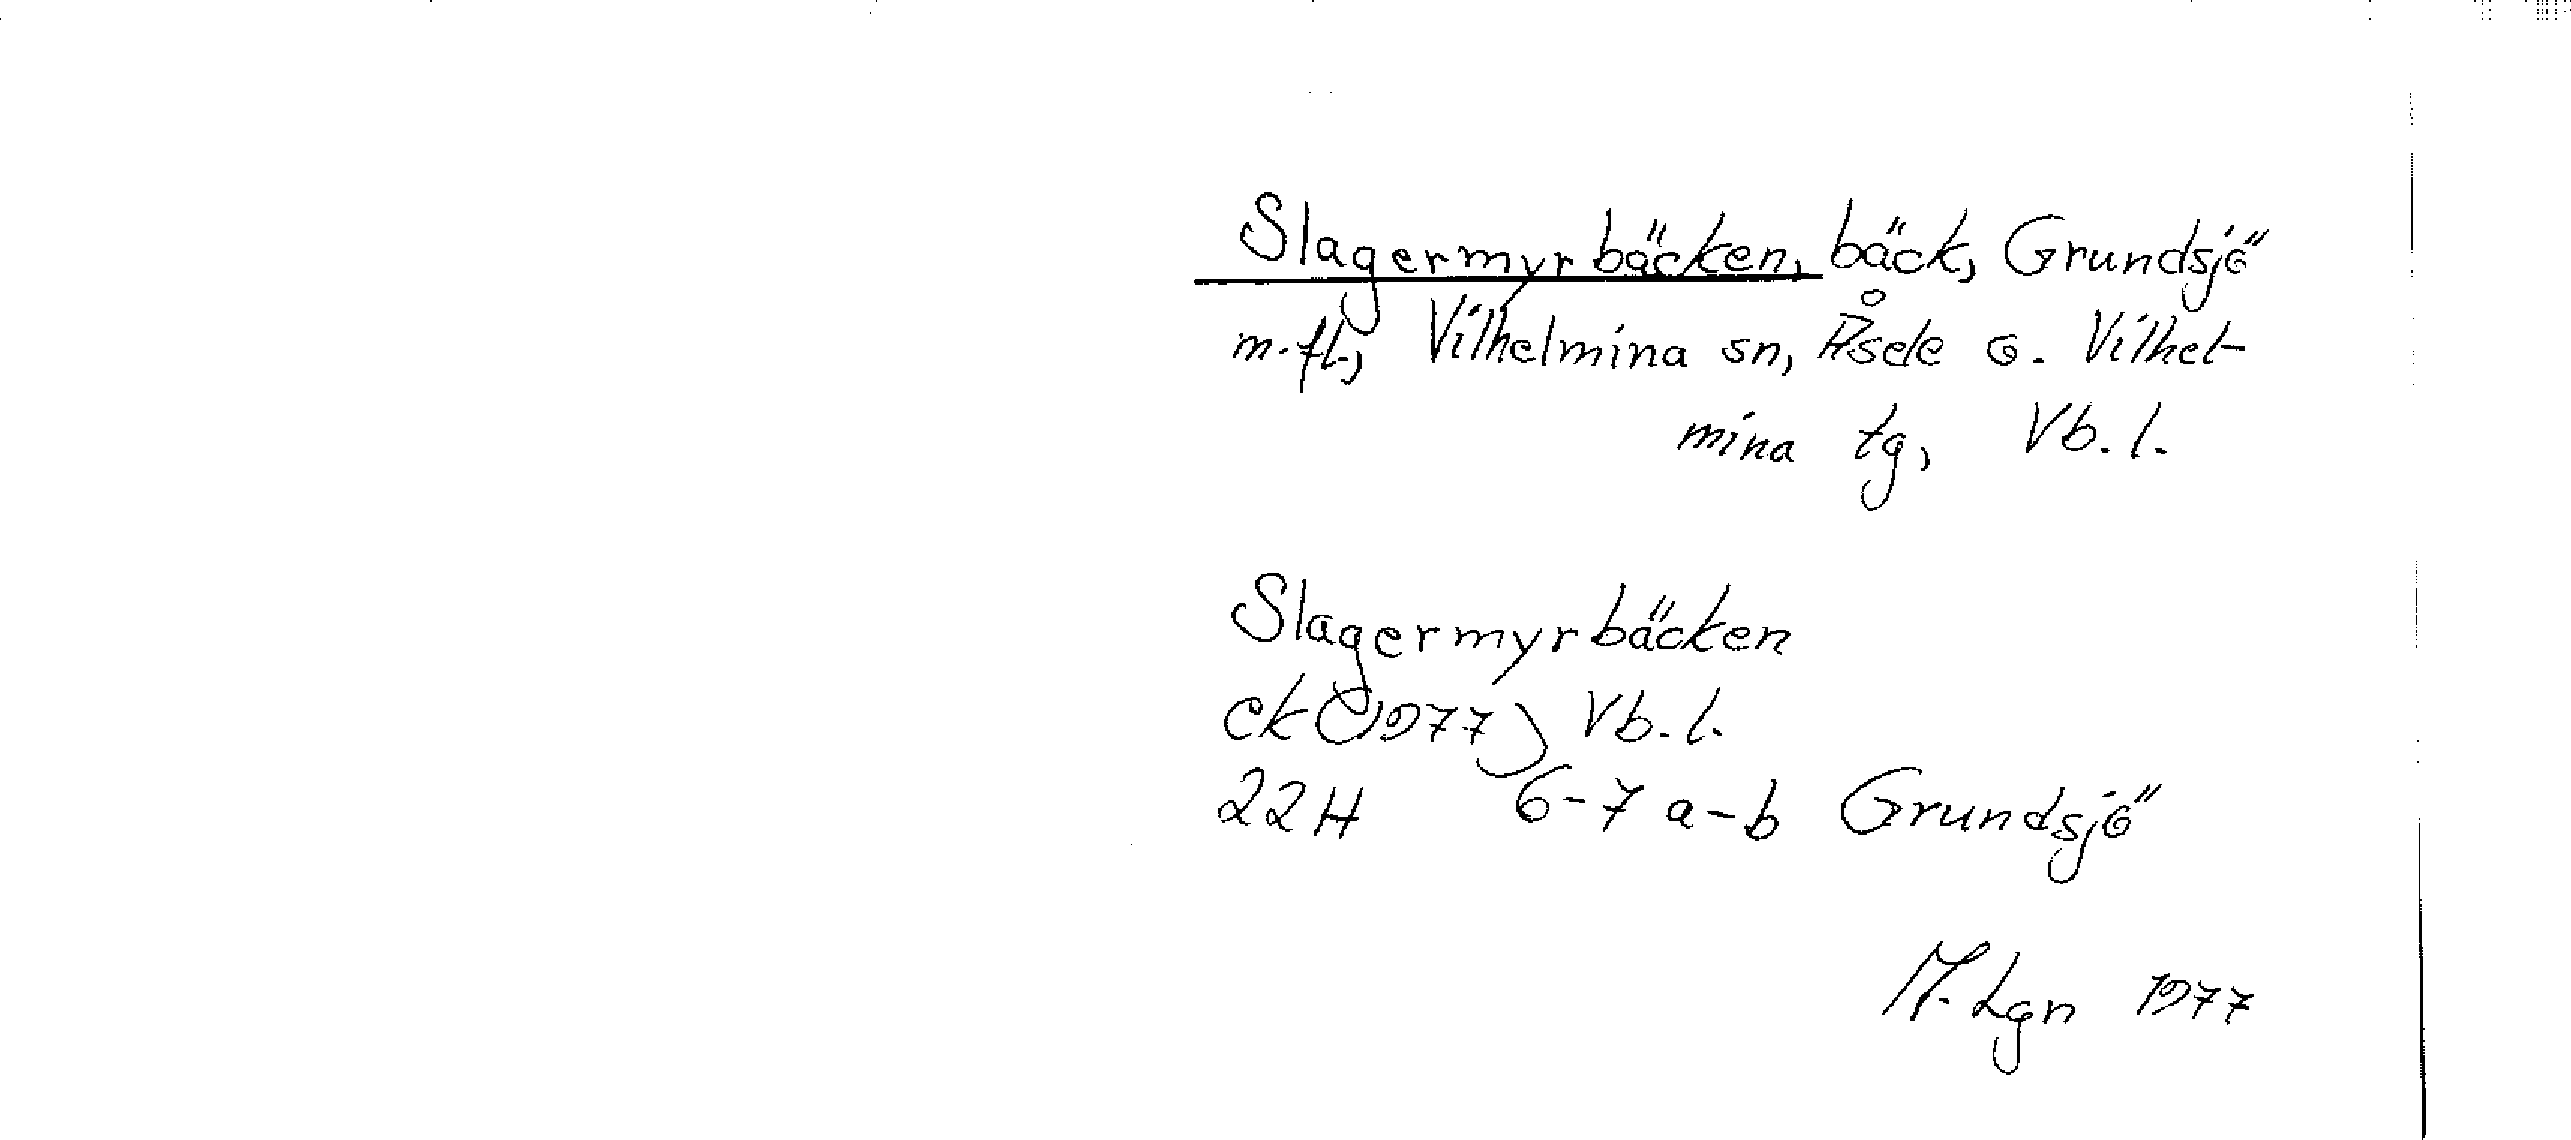 Slagermyrbäcken, bäck, Grundsjö
m.fl., Vilhelmina sn, Åsele o. Vilhel-
mina tg, Vb.l.
Slagermyrbäcken
ek (1977) Vb.l.
22H 6-7 a-b Grundsjö
M. Lgn 1977